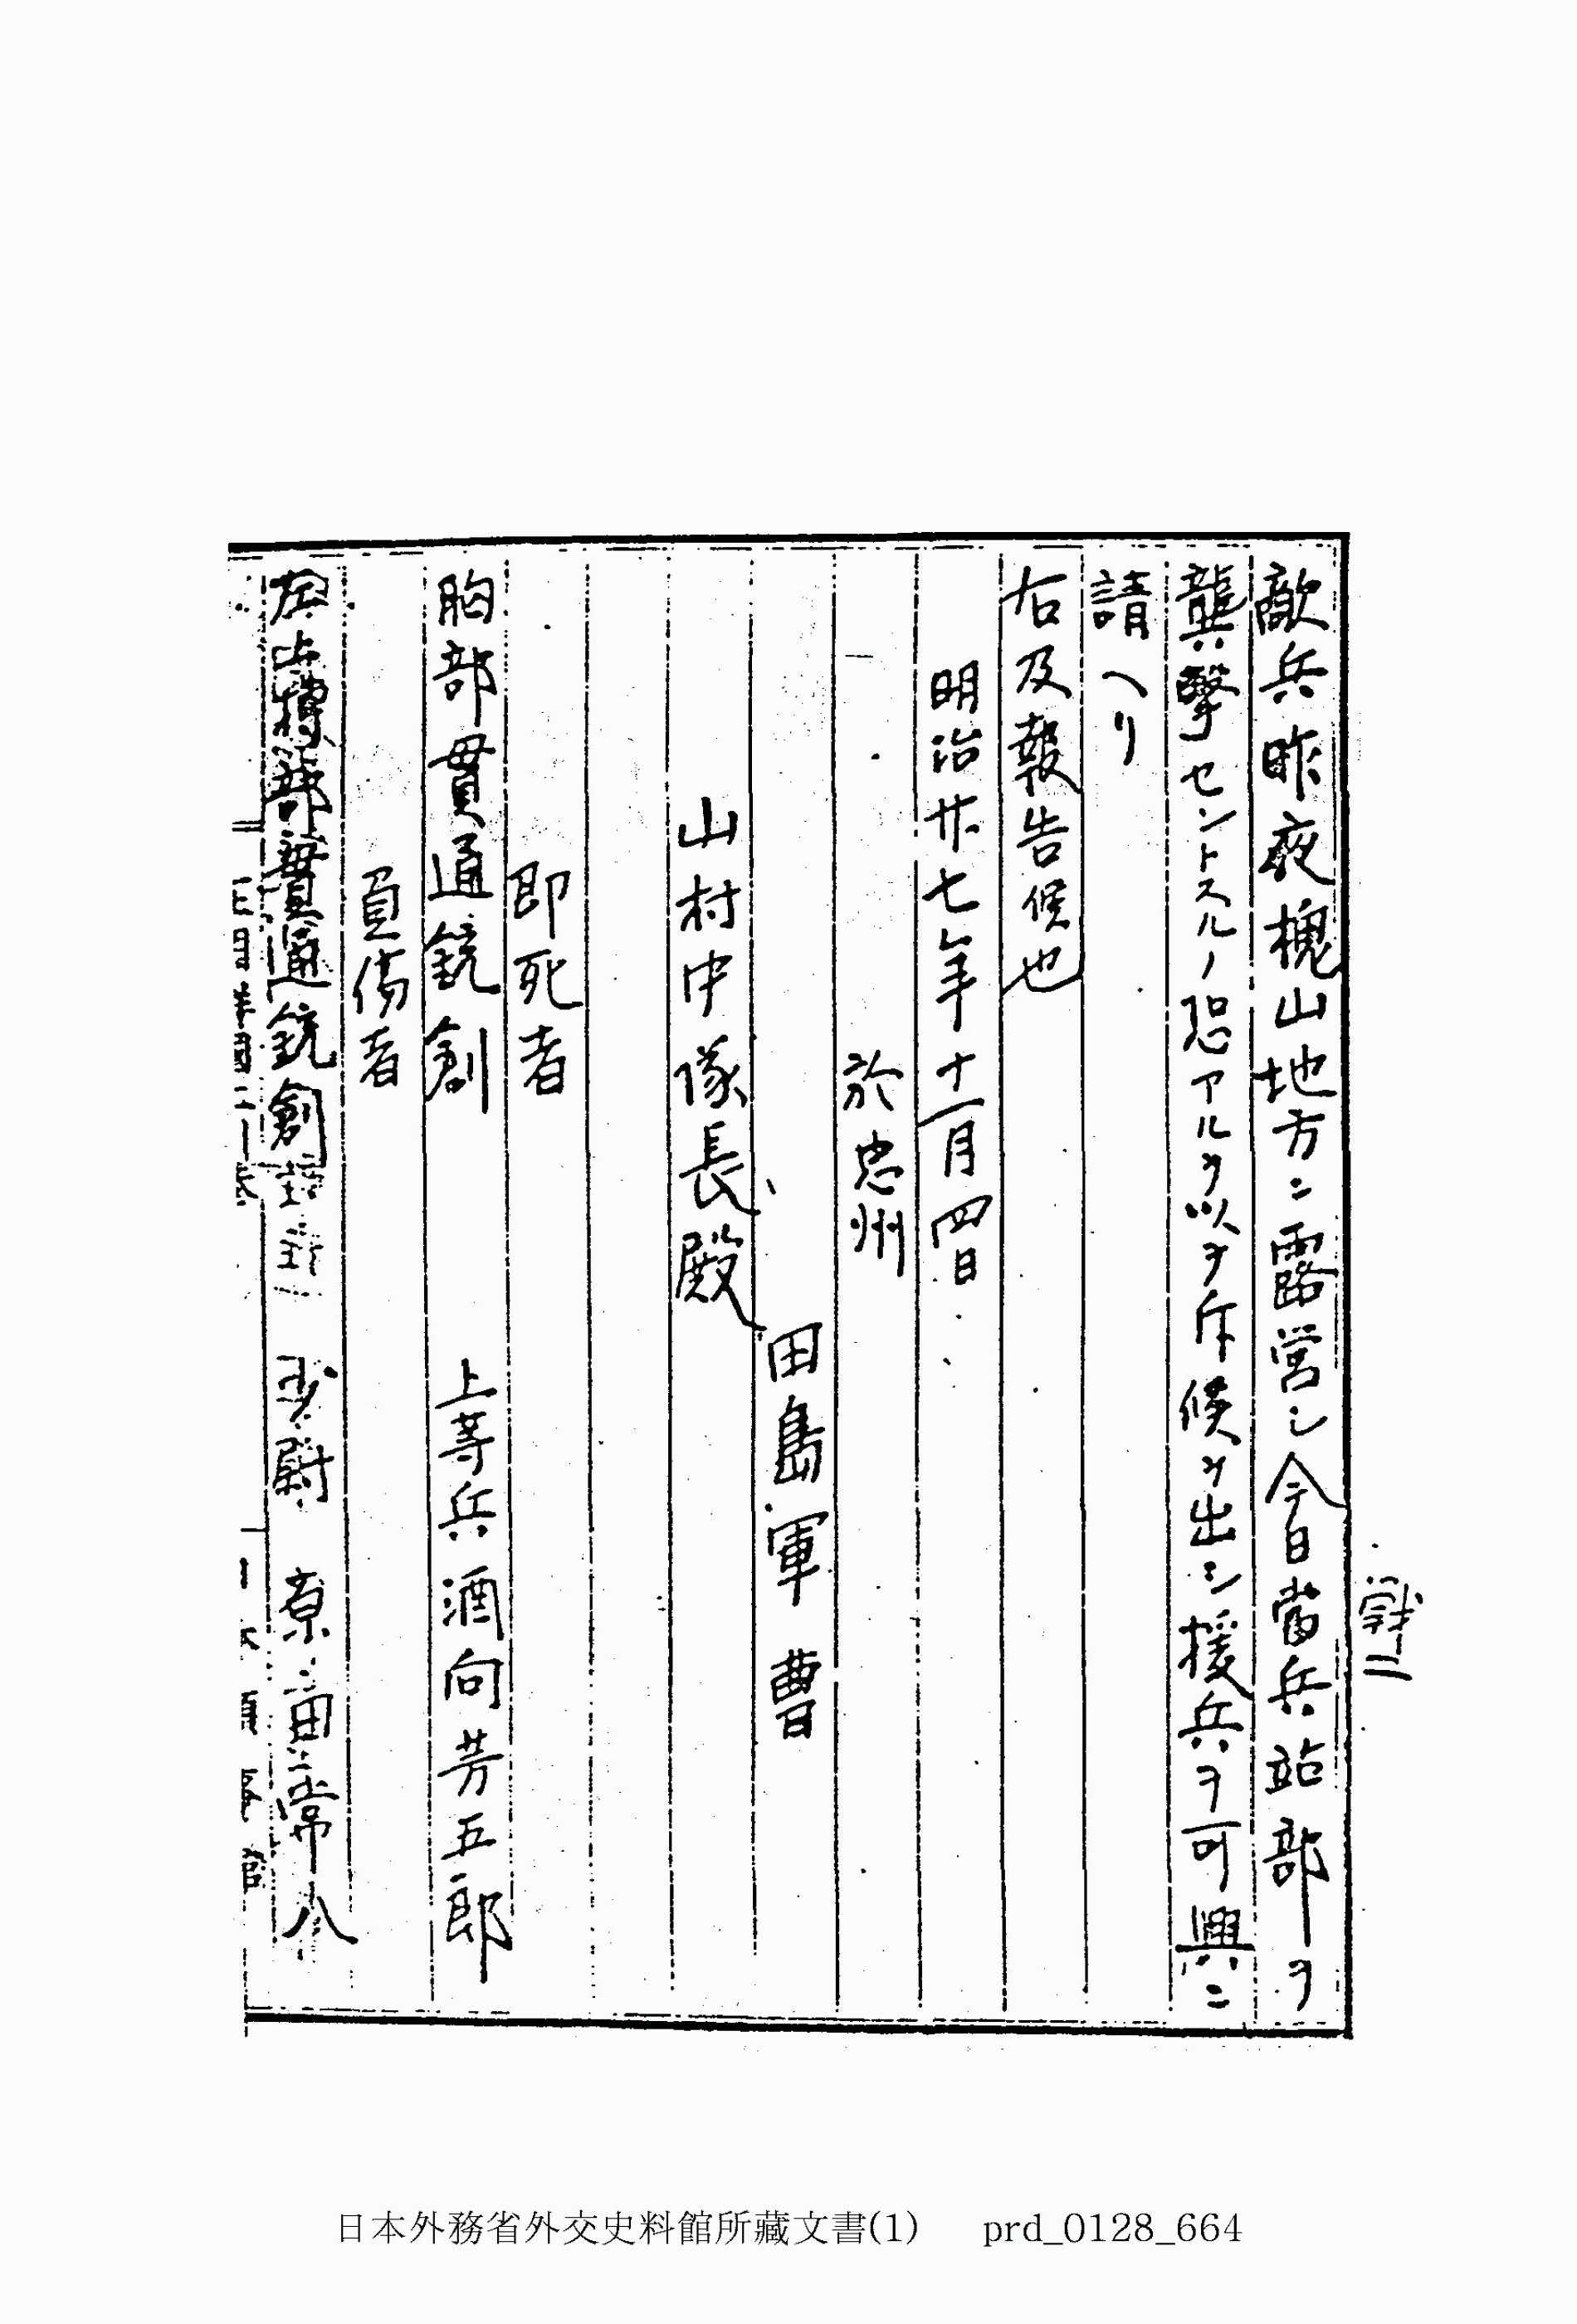 戦二
敵兵昨夜槐山地方ニ露営シ今日当兵站部ヲ
襲撃セントスルノ恐アルヲ以テ斥候ヲ出シ援兵ヲ可興ニ
請ヘリ
右及報告候也
明治廿七年十一月四日
於忠州
田島軍曹
山村中隊長殿
即死者
胸部貫通銃創 上等兵酒向芳五郎
負傷者
左上搏部貫通銃創 少尉 原田常八
日本外務省外交史料館所藏文書(1) prd_0128_664